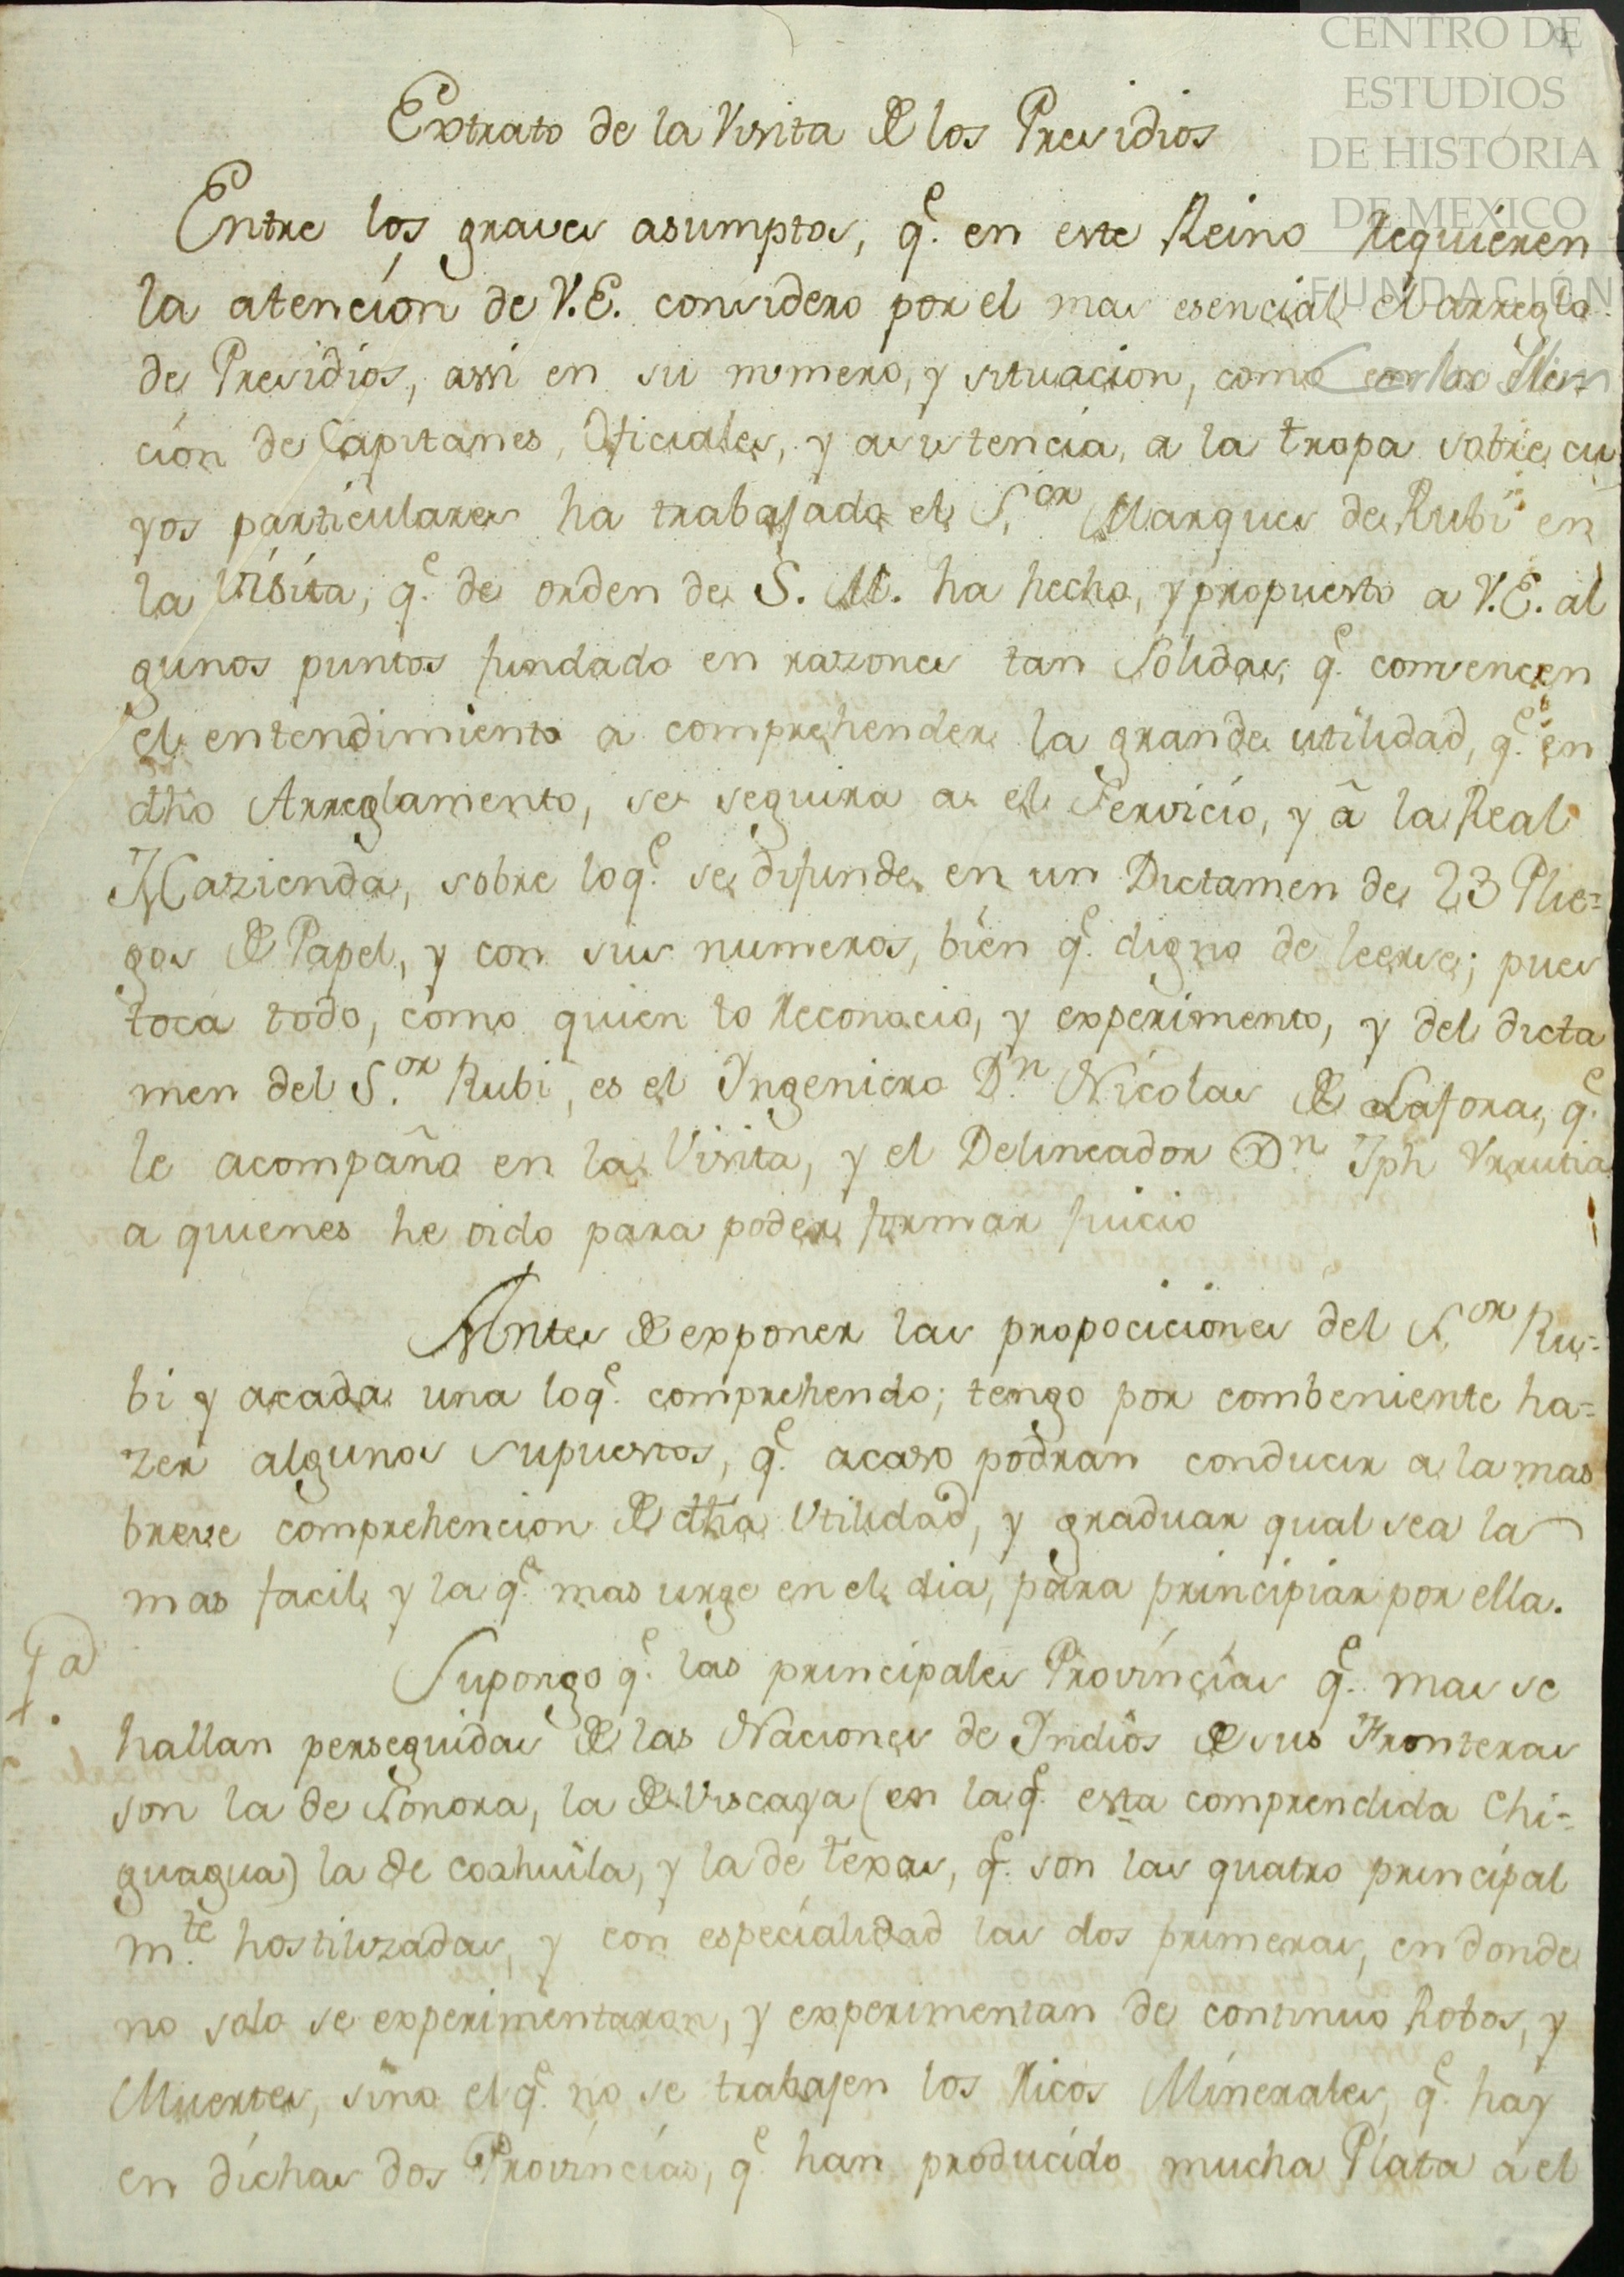 CENTRO DE
ESTUDIOS
DE HISTORIA
DE MEXICO
FUNDACIÓN
Extrato de la Visita de los Presidios
Entre los graves asumptos, q.e en este Reino requieren
la atencion de V.E. considero por el mas esencial el arreglo
de Presidios, assi en su numero, y situacion, como en la
cion de Capitanes, Oficiales, y asistencia, a la tropa sobre cu
yos particulares ha trabajado el S.or Marques de Rubi en
la Visita, q.e de orden de S. M. ha hecho, y propuesto a V.E. al
gunos puntos fundado en razones tan Solidas, q.e convencen
el entendimiento a comprehender la grande utilidad, q.e en
dho Arreglamento, se seguira a el Servicio, y â la Real
Hazienda, sobre loq.e se difunde en un Dictamen de 23 Plie=
gos de Papel, y con sus numeros, bien q.e digno de leerse; pues
toca todo, como quien lo reconocio, y experimento, y del dicta
men del S.or Rubi, es el Ingeniero D.n Nicolas de Lafora, q.e
le acompaño en la Visita, y el Delineador D.n Jph Urrutia
a quienes he oido para poder formar juicio
Antes de exponer las propociciones del S.or Ru=
bi y acada una loq.e comprehendo; tengo por combeniente ha=
zer algunos supuestos, q.e acaso podran conducir a la mas
breve comprehencion de dha Utilidad, y graduar qual sea la
mas facil y la q.e mas urge en el dia, para principiar por ella.
1.a
Supongo q.e las principales Provincias q.e mas se
hallan perseguidas de las Naciones de Indios de sus Fronteras
son la de Sonora, la de Viscaya (en la q.e esta comprendida Chi=
guagua) la de Coahuila, y la de Texas, q.e son las quatro principal
m.te hostilizadas, y con especialidad las dos primeras, en donde
no solo se experimentaron, y experimentan de continuo Robos, y
Muertes, sino el q.e no se trabajen los ricos Minerales, q.e hay
en dichas dos Provincias, q.e han producido mucha Plata a el